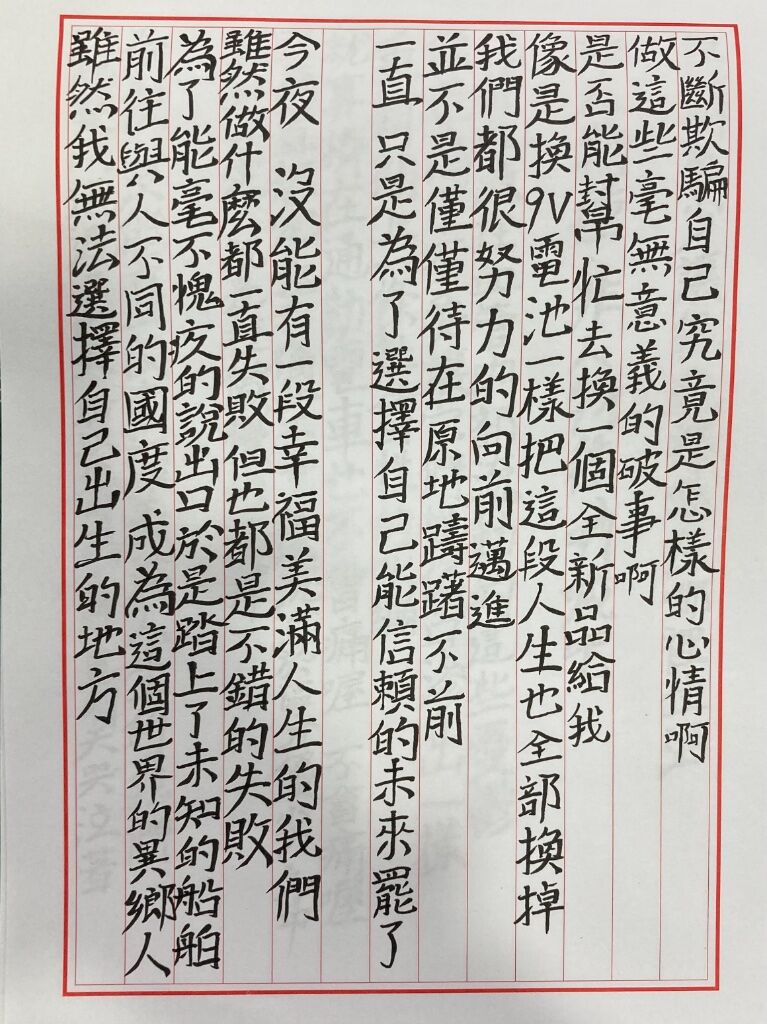 不斷欺騙自己究竟是怎樣的心情啊
做這些毫無意義的破事啊
是否能幫忙去換一個全新品給我
像是換9V電池一樣把這段人生也全部換掉
我們都很努力的向前邁進
並不是僅僅待在原地躊躇不前
一直 只是為了選擇自己能信賴的未來罷了
今夜 沒能有一段幸福美滿人生的我們
雖然做什麼都一直失敗 但也都是不錯的失敗
為了能毫不愧疚的說出口 於是踏上了未知的船舶
前往與人不同的國度 成為這個世界的異鄉人
雖然我無法選擇自己出生的地方